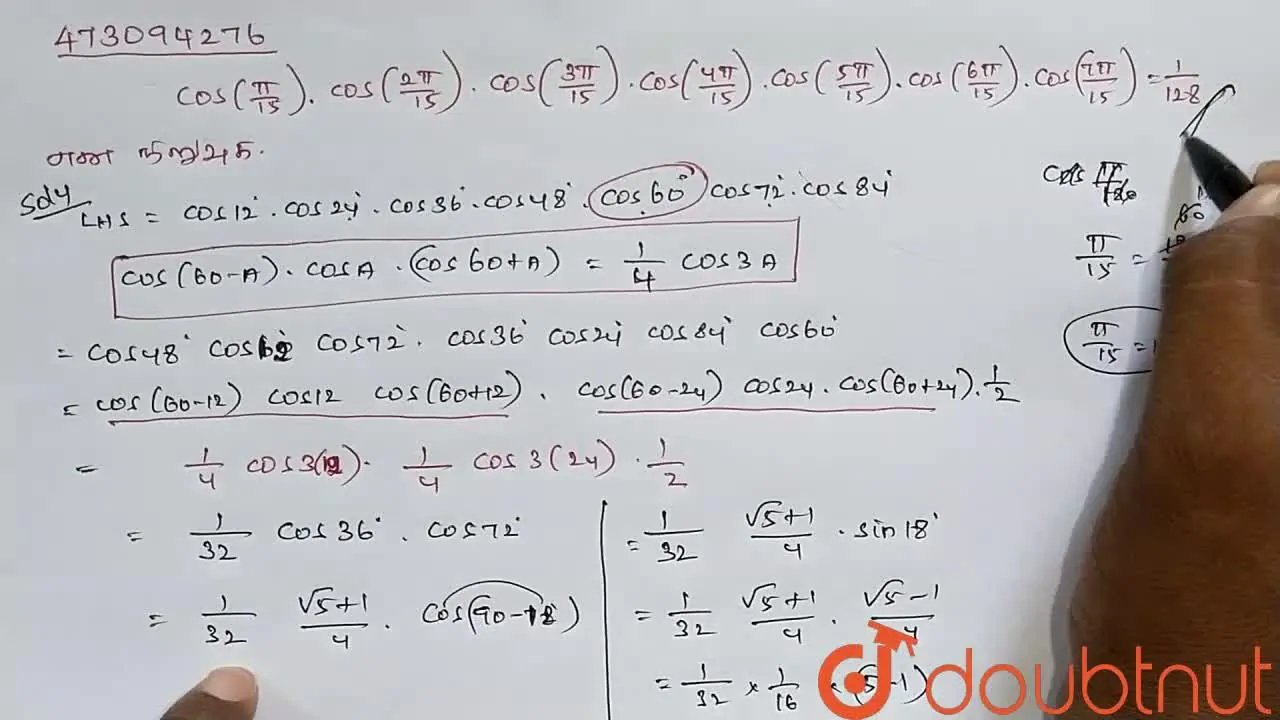 473094276
cos(π/15). cos(2π/15) . cos(3π/15) . cos(4π/15) . cos(5π/15) . cos(6π/15) . cos(7π/15) = 1/128
என நிறுவுக.
Soln
LHS = cos12° . cos24° . cos36° . cos48° . cos60° cos72° . cos84°
cos(60-A) . cosA . (cos60+A) = 1/4 cos3A
π/15 =
π/15 = 1
= cos48° cos12 cos72° . cos36° cos24° cos84° cos60°
= cos(60-12) cos12 cos(60+12) . cos(60-24) cos24 . cos(60+24) . 1/2
= 1/4 cos3(12) . 1/4 cos3(24) . 1/2
= 1/32 cos36° . cos72°
= 1/32 √5+1/4 . cos(90-18)
= 1/32 √5+1/4 . sin18°
= 1/32 √5+1/4 . √5-1/4
= 1/32 × 1/16 × (5-1)
doubtnut